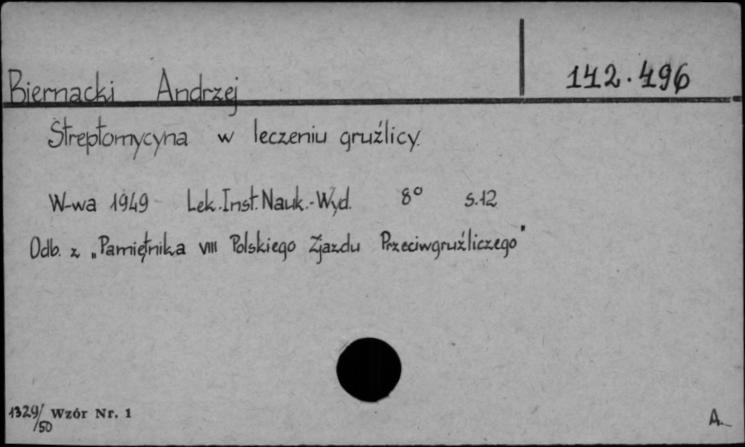 142.496
Biernacki Andrzej
Streptomycyna w leczeniu gruźlicy.
W-wa 1949 Lek.Inst.Nauk.-Wyd. 8° s.12
Odb. z „Pamiętnika VIII Polskiego Zjazdu Przeciwgruźliczego"
1329/50 Wzór Nr. 1
A.